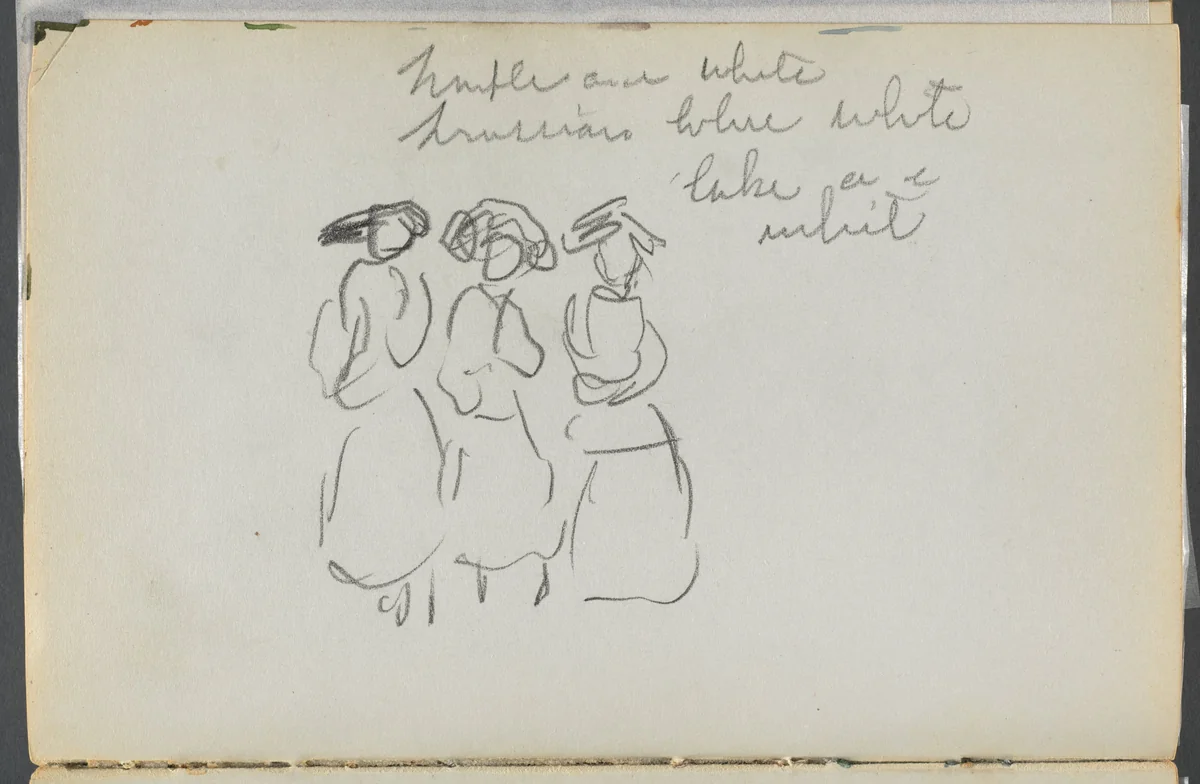 Purple and white
prussian blue white
lake and
whit